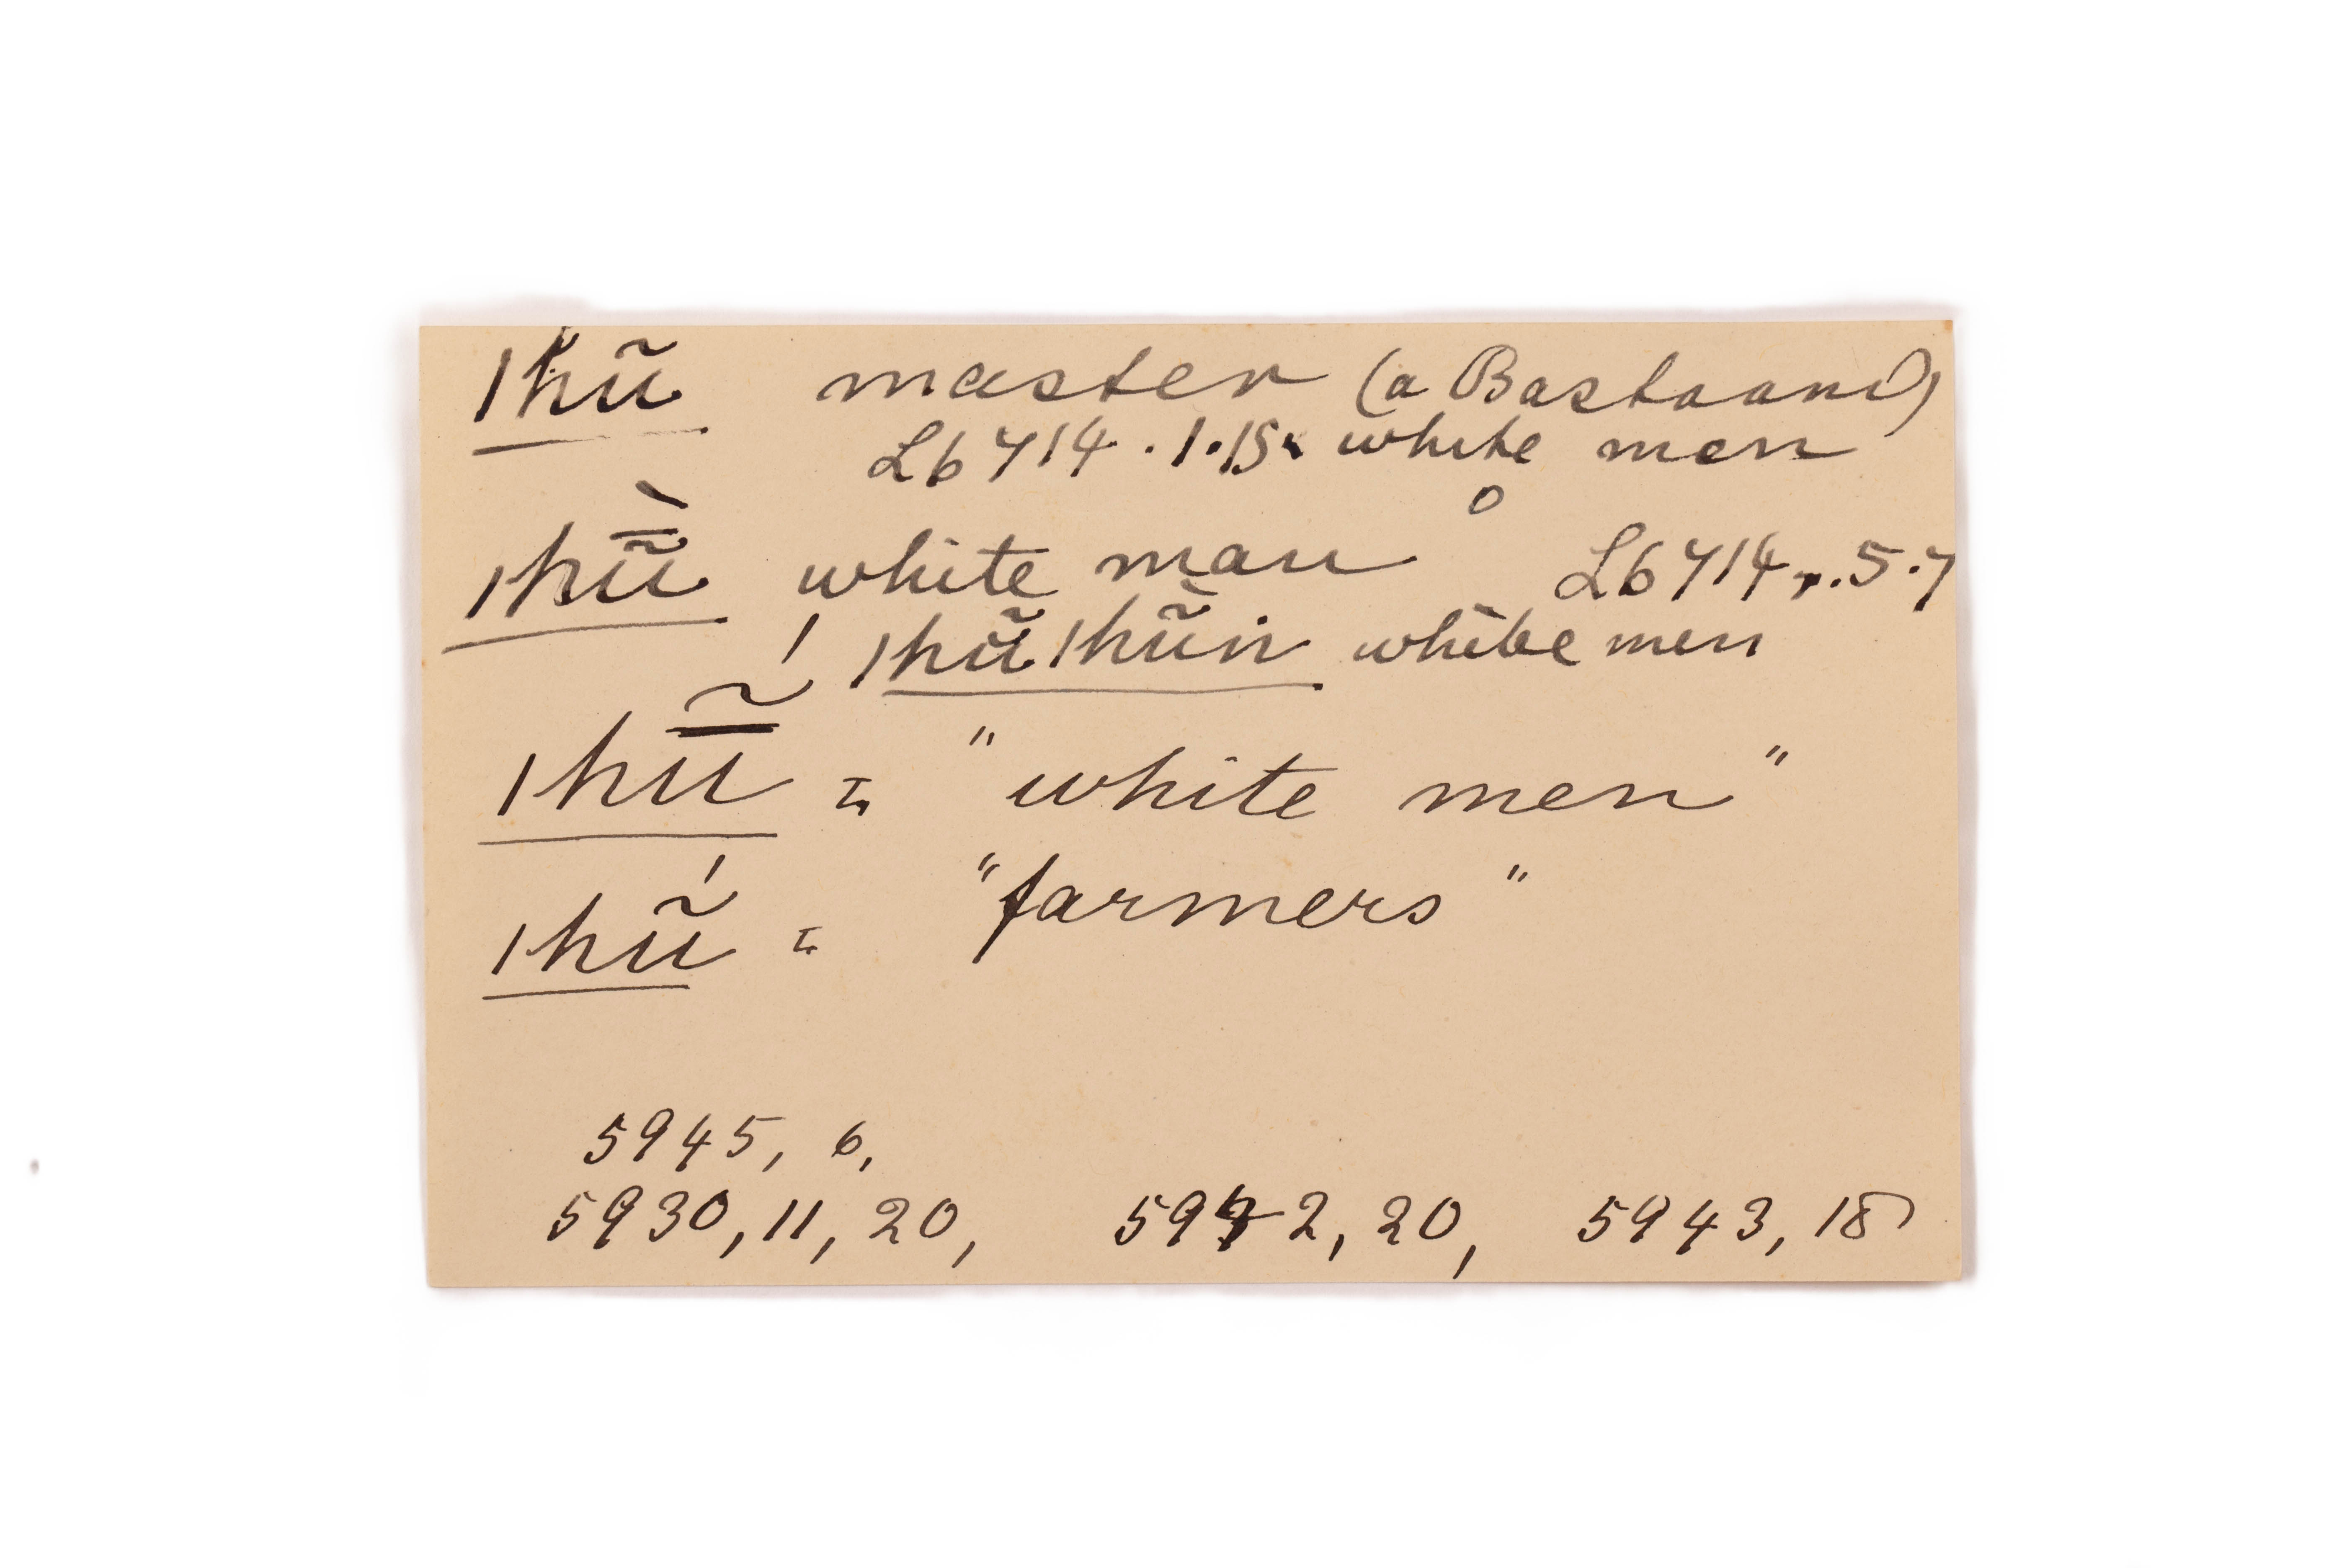 ǀhũ master (a Bastaard)
L6714.1.15. white men
ǀhṹ̀ white man L6714.5.7
ǀhũǀhũn white men
ǀhũ̄ = "white men"
ǀhṹ = "farmers"
5945, 6,
5930, 11, 20, 5942, 20, 5943, 18